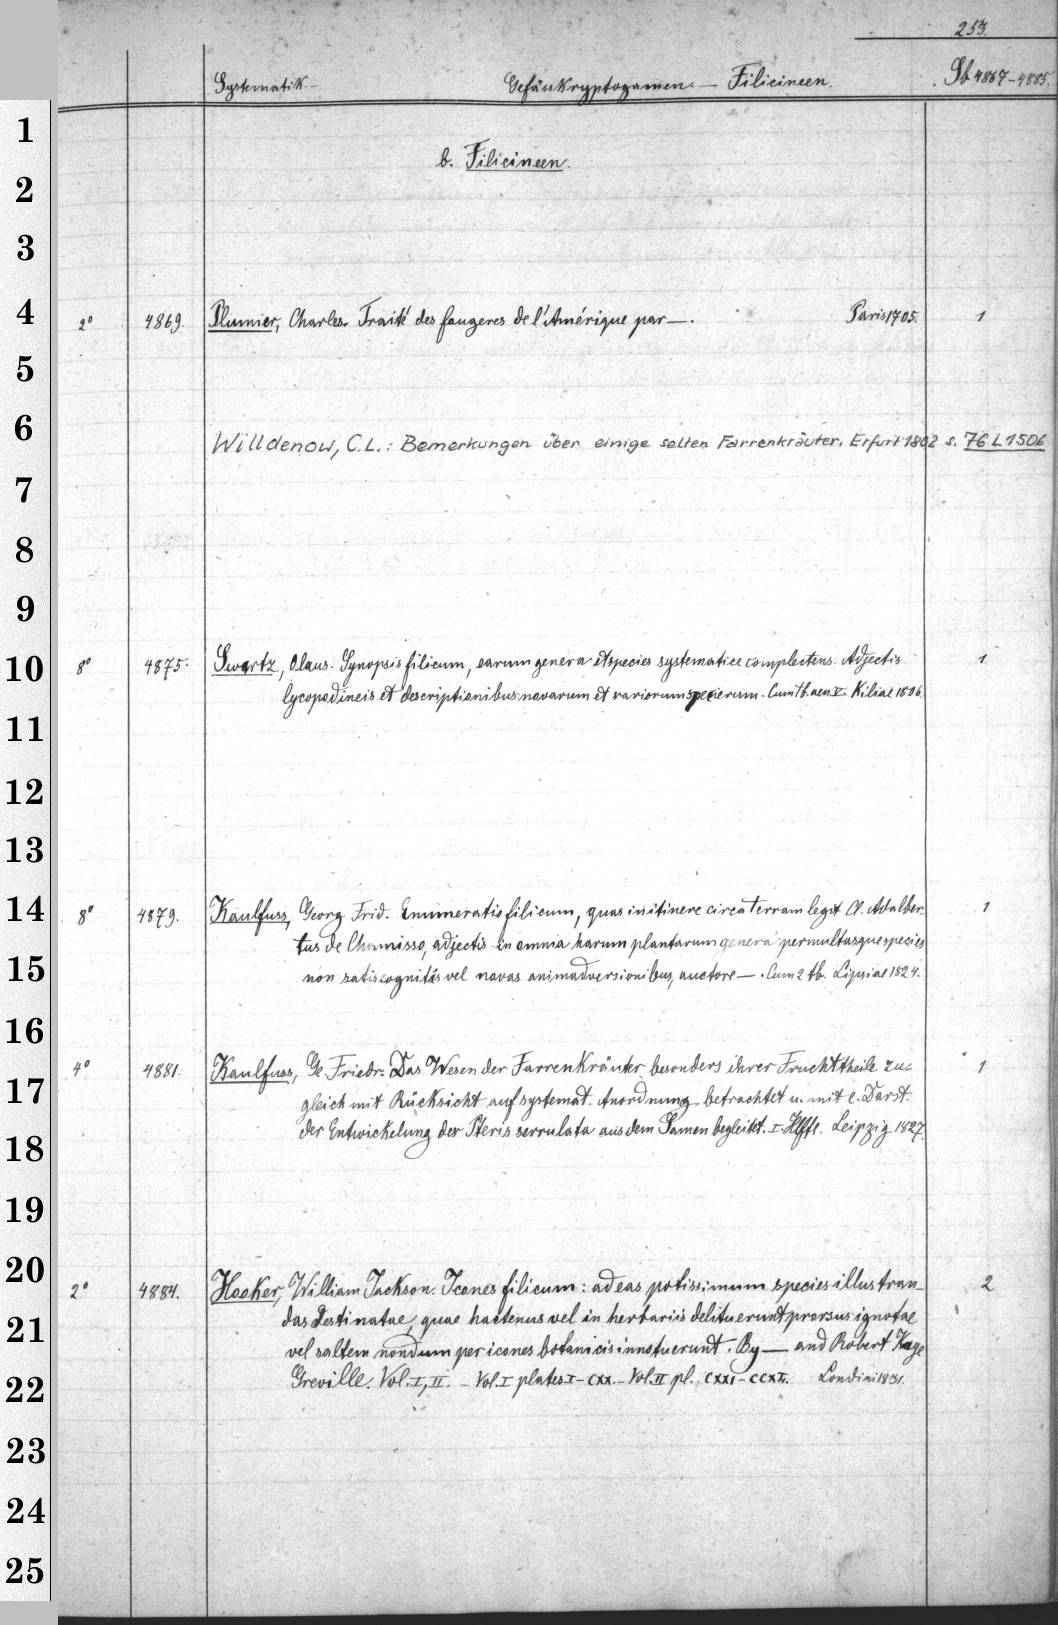 253.
Systematik. Gefässkryptogamen. — Filicineen. Sb 4867-4885.
b. Filicineen.
2° 4869. Plumier, Charles. Traité des fougeres de l'Amérique par —. Paris 1705. 1
Willdenow, C.L.: Bemerkungen über einige selten Farrenkräuter. Erfurt 1802 s. 76 L 1506
8° 4875. Swartz, Olaus. Synopsis filicum, earum genera et species systematice complectens. Adjectis 1
lycopodineis et descriptionibus novarum et rariorum specierum. Cum tb. aen. V. Kiliae 1806.
8° 4879. Kaulfuss, Georg Frid. Enumeratio filicum, quas in itinere circa terram legit Cl. Adalber- 1
tus de Chamisso, adjectis in omnia harum plantarum genera permultasque species
non satis cognitas vel novas animadversionibus, auctore —. Cum 2 tb. Lipsiae 1824.
4° 4881. Kaulfuss, Ge. Friedr. Das Wesen der Farrenkräuter besonders ihrer Fruchttheile zu- 1
gleich mit Rücksicht auf systemat. Anordnung betrachtet u. mit e. Darst.
der Entwickelung der Pteris serrulata aus dem Samen begleitet. I. Hffte. Leipzig 1827.
2° 4884. Hooker, William Jackson. Icones filicum: ad eas potissimum species illustran- 2
das destinatae, quae hactenus vel in herbariis delituerunt prorsus ignotae
vel saltem nondum per icones botanicis innotuerunt. By — and Robert Kaye
Greville. Vol. I, II. — Vol. I plates I-CXX. — Vol. II pl. CXXI-CCXL. Londini 1831.
1
2
3
4
5
6
7
8
9
10
11
12
13
14
15
16
17
18
19
20
21
22
23
24
25